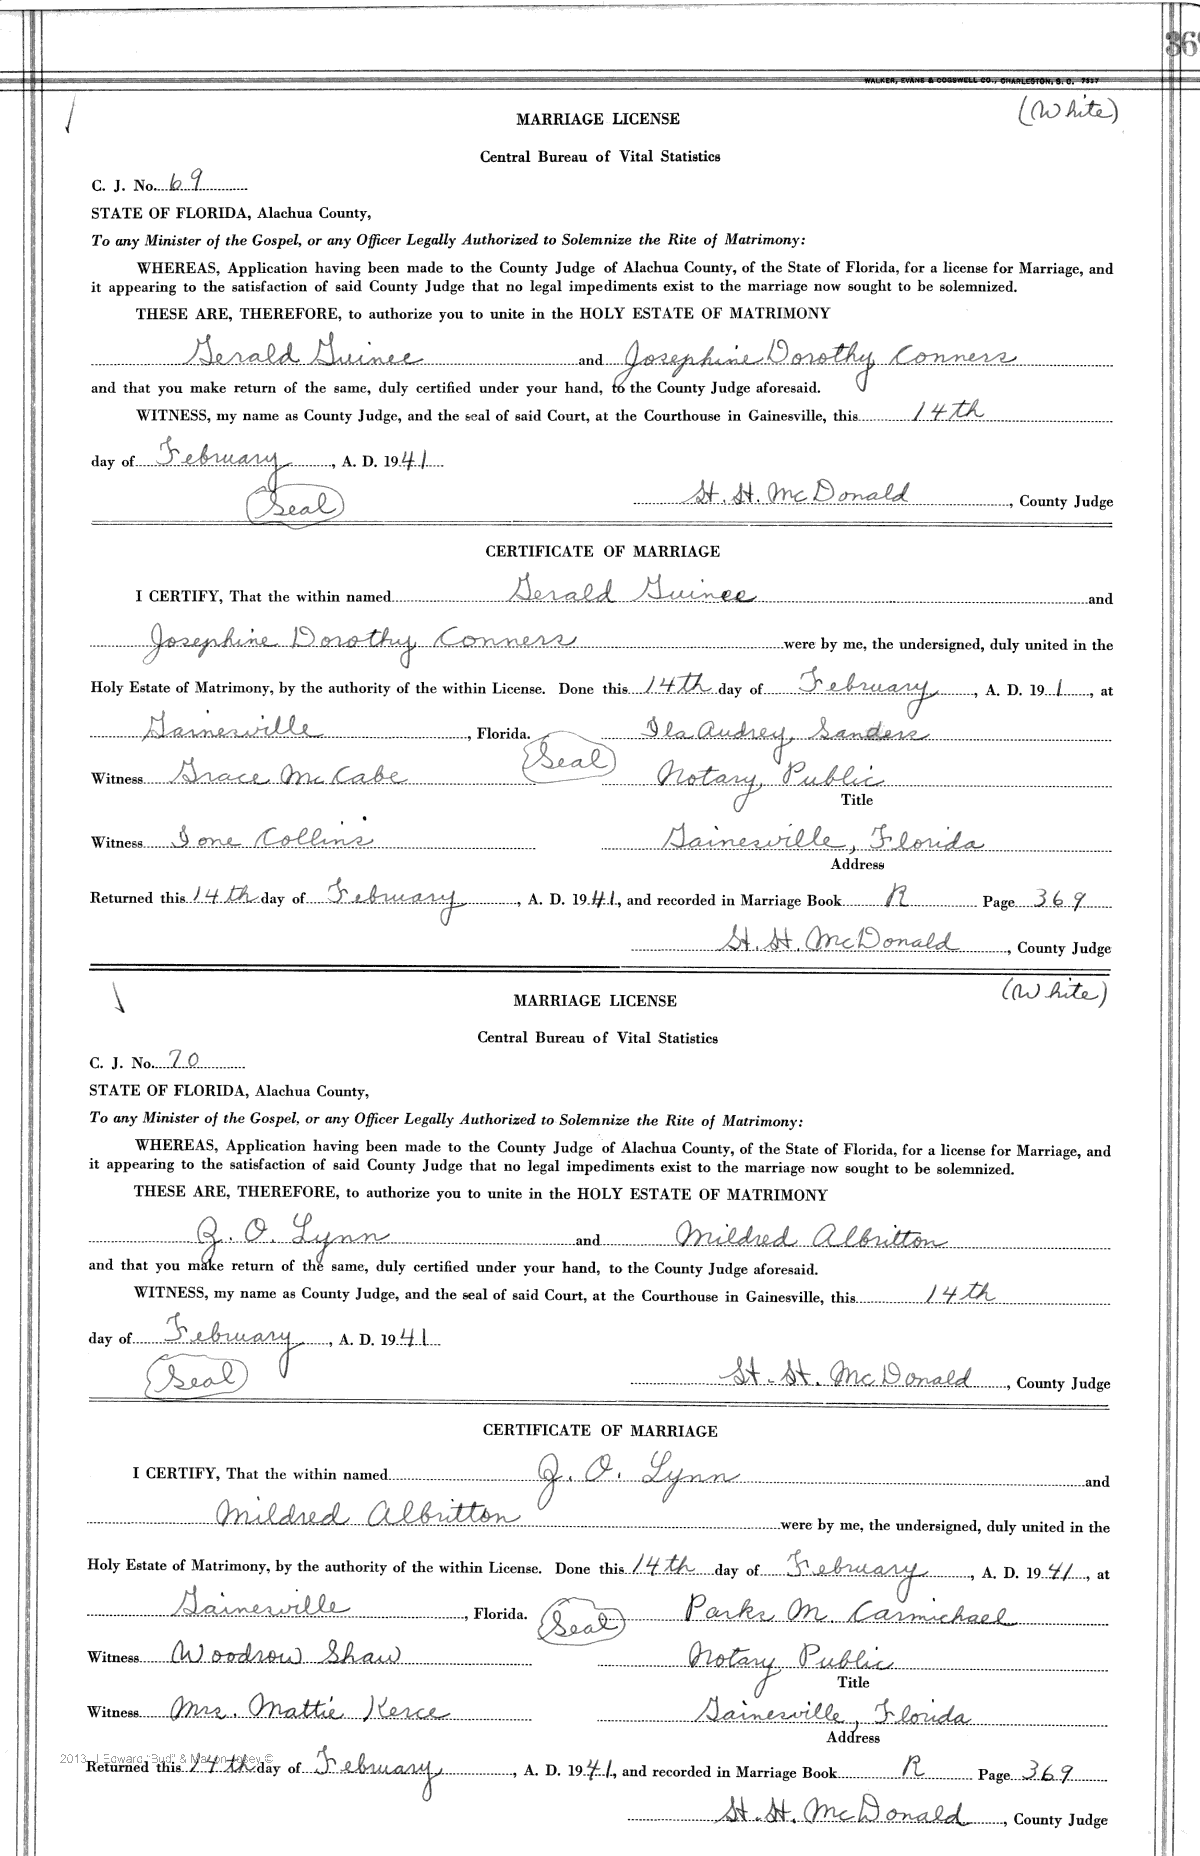 369
WALKER, EVANS & COGSWELL CO., CHARLESTON, S. C. 7537
(White)
MARRIAGE LICENSE
Central Bureau of Vital Statistics
C. J. No. 69
STATE OF FLORIDA, Alachua County,
To any Minister of the Gospel, or any Officer Legally Authorized to Solemnize the Rite of Matrimony:
WHEREAS, Application having been made to the County Judge of Alachua County, of the State of Florida, for a license for Marriage, and
it appearing to the satisfaction of said County Judge that no legal impediments exist to the marriage now sought to be solemnized.
THESE ARE, THEREFORE, to authorize you to unite in the HOLY ESTATE OF MATRIMONY
Gerald Guinee and Josephine Dorothy Conners
and that you make return of the same, duly certified under your hand, to the County Judge aforesaid.
WITNESS, my name as County Judge, and the seal of said Court, at the Courthouse in Gainesville, this 14th
day of February, A. D. 1941
Seal H. H. McDonald, County Judge
CERTIFICATE OF MARRIAGE
I CERTIFY, That the within named Gerald Guinee and
Josephine Dorothy Conners were by me, the undersigned, duly united in the
Holy Estate of Matrimony, by the authority of the within License. Done this 14th day of February, A. D. 19 1, at
Gainesville, Florida. Ila Audrey Sanders
Seal
Witness Grace McCabe Notary Public
Title
Witness Ione Collins Gainesville, Florida
Address
Returned this 14th day of February, A. D. 1941, and recorded in Marriage Book R Page 369
H. H. McDonald, County Judge
(White)
MARRIAGE LICENSE
Central Bureau of Vital Statistics
C. J. No. 70
STATE OF FLORIDA, Alachua County,
To any Minister of the Gospel, or any Officer Legally Authorized to Solemnize the Rite of Matrimony:
WHEREAS, Application having been made to the County Judge of Alachua County, of the State of Florida, for a license for Marriage, and
it appearing to the satisfaction of said County Judge that no legal impediments exist to the marriage now sought to be solemnized.
THESE ARE, THEREFORE, to authorize you to unite in the HOLY ESTATE OF MATRIMONY
J. O. Lynn and Mildred Albritton
and that you make return of the same, duly certified under your hand, to the County Judge aforesaid.
WITNESS, my name as County Judge, and the seal of said Court, at the Courthouse in Gainesville, this 14th
day of February, A. D. 1941
Seal H. H. McDonald, County Judge
CERTIFICATE OF MARRIAGE
I CERTIFY, That the within named J. O. Lynn and
Mildred Albritton were by me, the undersigned, duly united in the
Holy Estate of Matrimony, by the authority of the within License. Done this 14th day of February, A. D. 1941, at
Gainesville, Florida. Seal Parks M. Carmichael
Witness Woodrow Shaw Notary Public
Title
Witness Mrs. Mattie Kerce Gainesville, Florida
Address
2013 J Edward "Bud" & ©
Returned this 14th day of February, A. D. 1941, and recorded in Marriage Book R Page 369
H. H. McDonald, County Judge